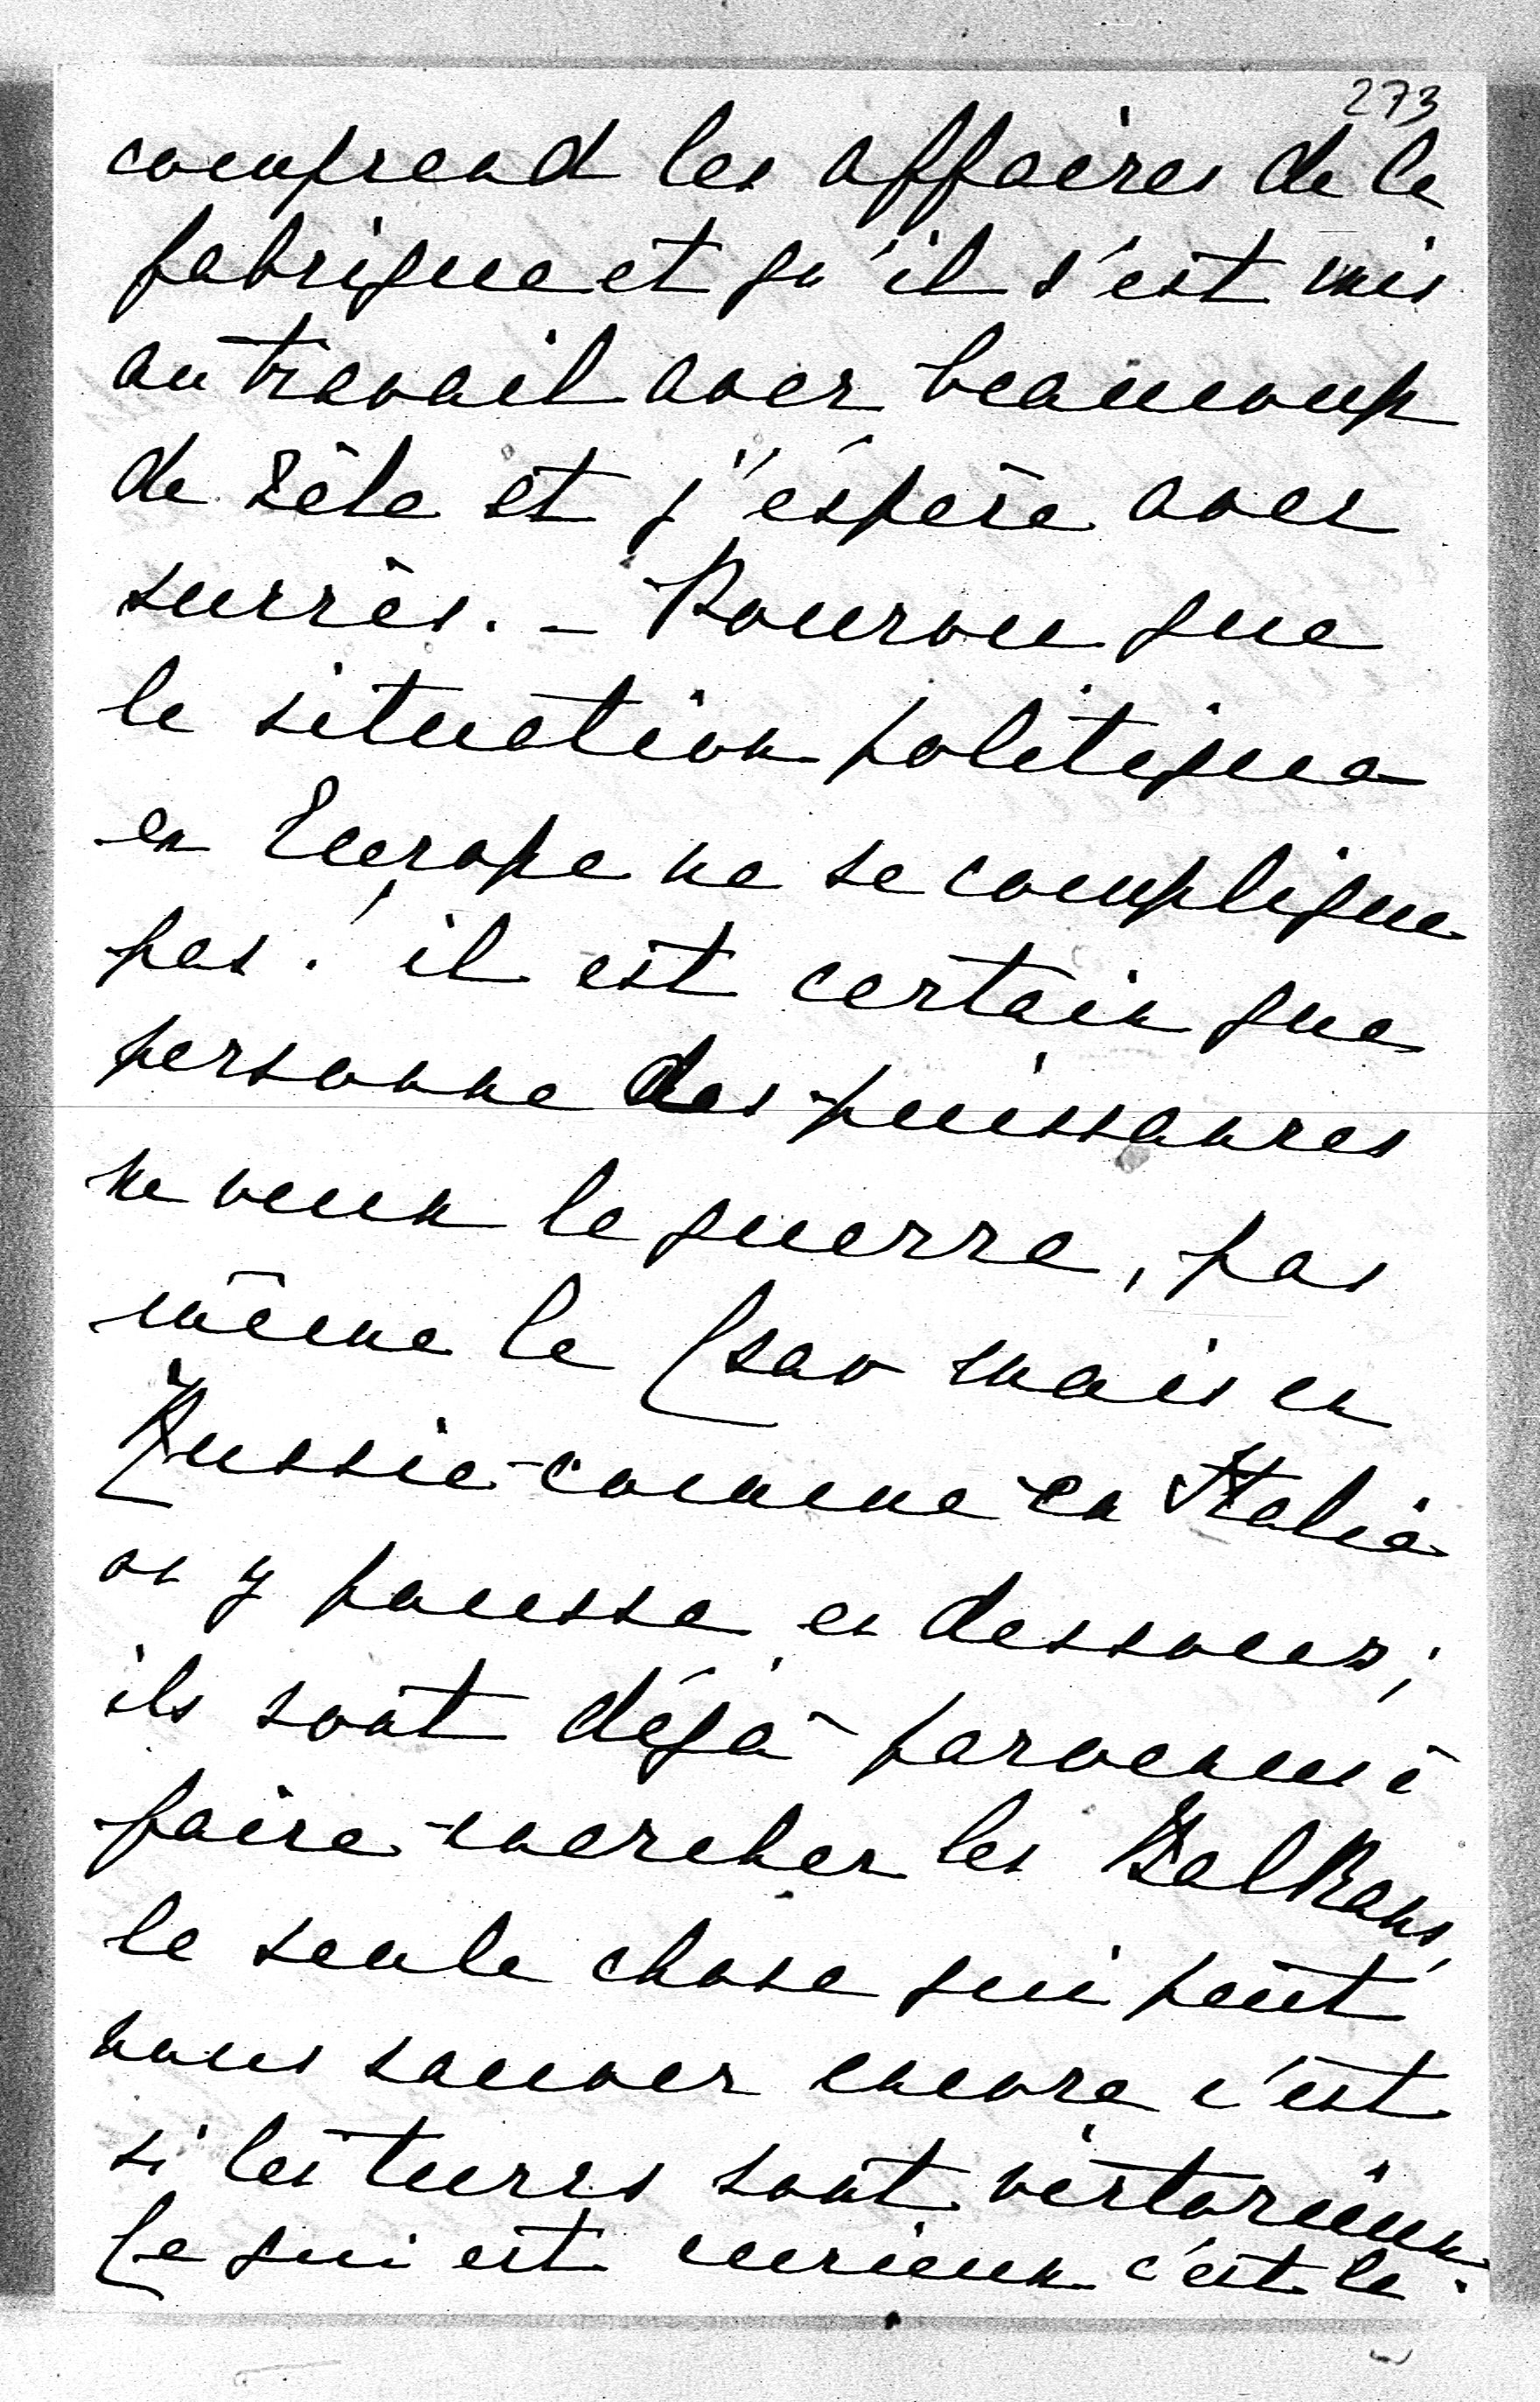 273
comprend les affaires de la
fabrique et qu'il s'est mis
au travail avec beaucoup
de zèle et j'éspère avec
succès. - Pourvu que
la situation politique
en Europe ne se complique
pas! il est certain que
personne des puissances
ne veux la guerre, pas
même le Csar mais en
Russie comme en Italie
on y pousse en dessous;
ils sont déjà parvenus à
faire marcher les Balkans,
la seule chose qui peut
nous sauver encore c'est
si les turcs sont victorieux.
Ce qui est curieux c'est la